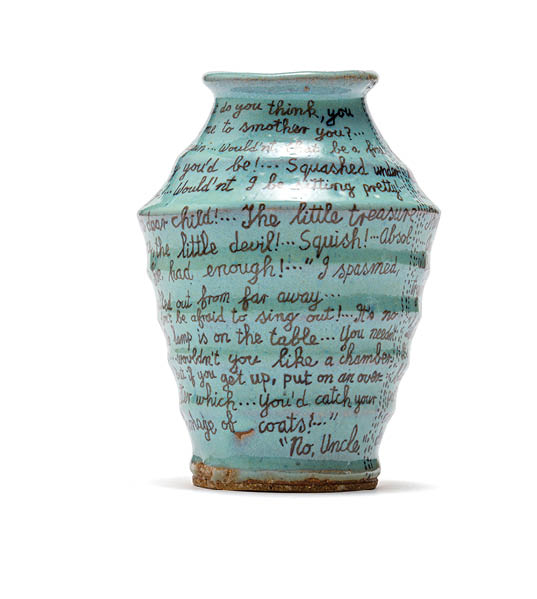 do you think, you
me to smother you?...
Would'nt that be a
you'd be!... Squashed under
...Would'nt I be sitting pretty!
dear child!... The little treasure
the little devil!... Squish!... Absol
had enough!..." I spasmed,
out from far away...
be afraid to sing out!... It's no
lamp is on the table... You needn't
wouldn't you like a chamber-
if you get up, put on an over-
which... You'd catch your
of coats!..."
"No, Uncle,